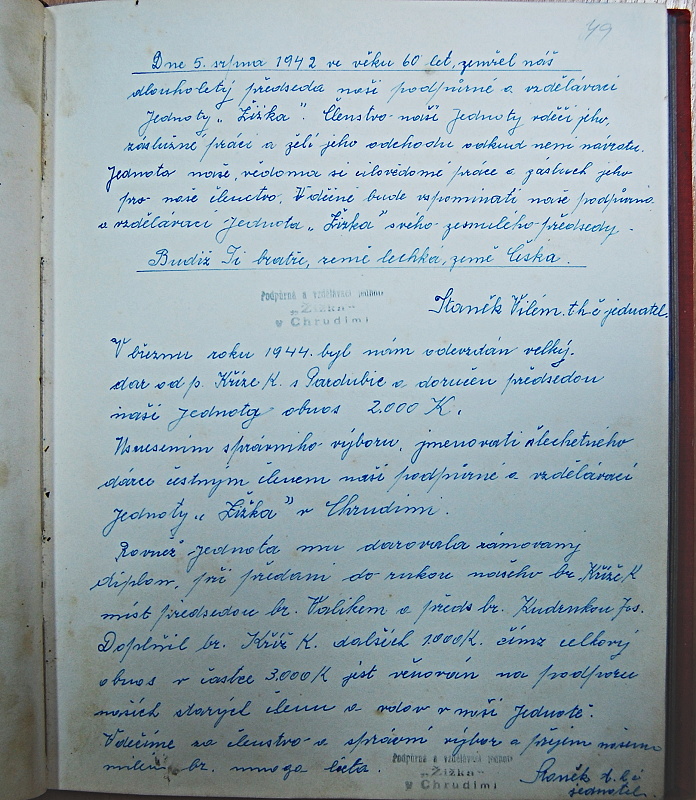 49
Dne 5. srpna 1942 ve věku 60 let, zemřel náš
dlouholetý předseda naší podpůrné a vzdělávací
Jednoty „Žižka". Členstvo naší Jednoty vděčí jeho,
záslužné práci a želí jeho odchodu odkud není návratu.
Jednota naše, vědoma si cílovědomé práce a zásluh jeho
pro naše členstvo. Vděčně bude vspomínati naše podpůrná
a vzdělávací Jednota „Žižka" svého zesnulého předsedy.
Budiž Ti bratře, země lechka, země Česká.
Podpůrná a vzdělávací jednota
„Žižka"
v Chrudimi
Staněk Vilém. t.h.č jednatel.
V březnu roku 1944. byl nám odevzdán velký.
dar od p. Kříže K. s Pardubic a doručen předsedou
naší Jednoty obnos 2.000 K.
Usnesením správního výboru, jmenovati šlechetného
dárce čestným členem naší podpůrné a vzdělávací
Jednoty „Žižka" v Chrudimi.
Rovněž Jednota mu darovala rámovaný
diplom, při předání do rukou našeho br. Kříže K
míst předsedou br. Valikem a předs br. Kudrnkou Jos.
Doplnil br. Kříž K. dalších 1.000 K. čímž celkový
obnos v částce 3.000 K jest věnován na podporu
našich starých členu a vdov v naší Jednotě.
Vděčíme za členstvo a správní výbor a přejem našemu
milému br. mnoga lieta.
Podpůrná a vzdělávací jednota
„Žižka"
v Chrudimi
Staněk t.č.
jednatel.